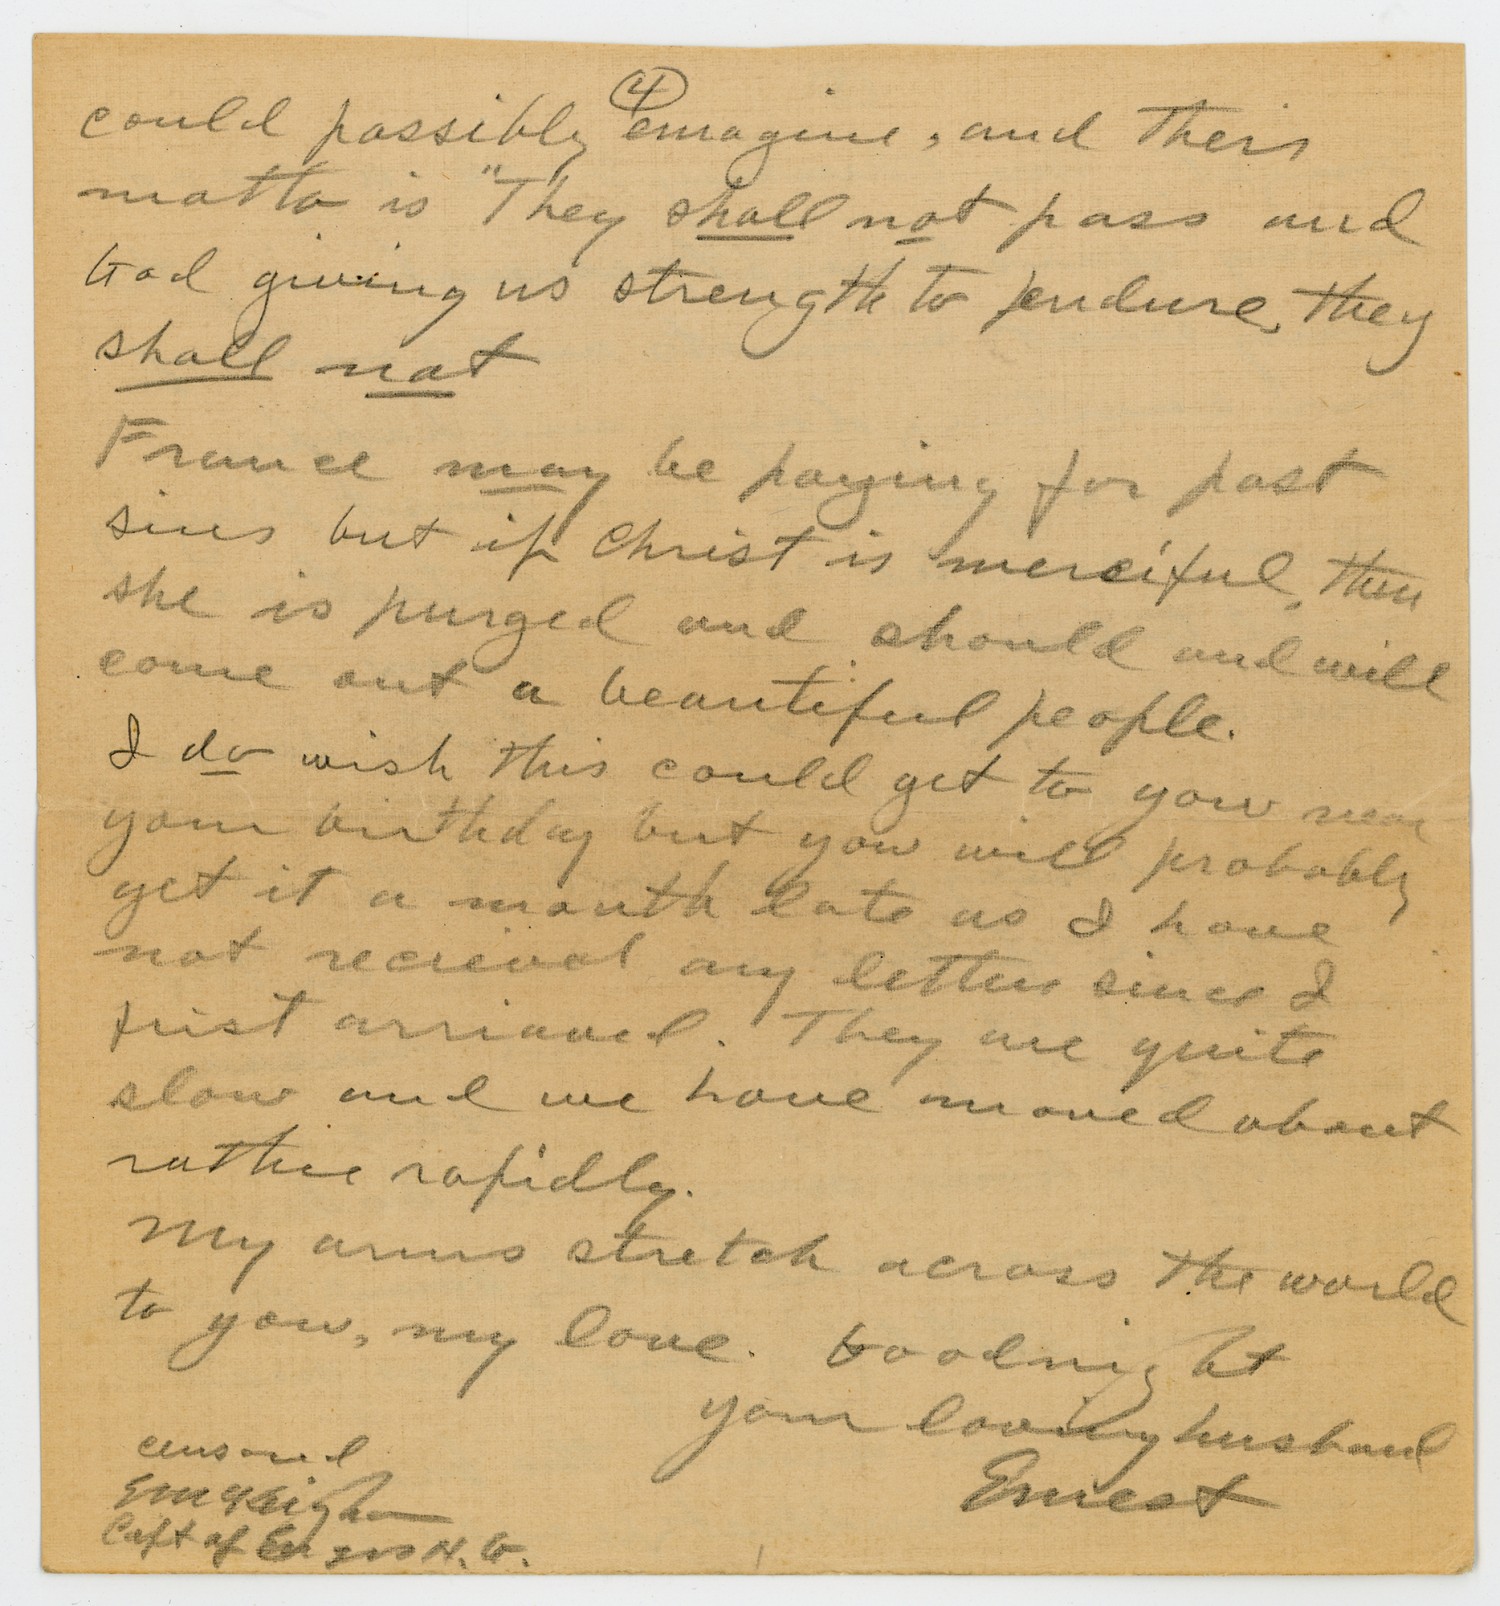 ④
could possibly emagine, and their
motto is "They shall not pass and
God giving us strength to endure, they
shall not
France may be paying for past
sins but if Christ is merciful, then
she is purged and should and will
come out a beautiful people.
I do wish this could get to you near
your birthday but you will probably
get it a month late as I have
not recieved any letters since I
first arrived. They are quite
slow and we have moved about
rather rapidly.
My arms stretch across the world
to you, my love. Goodnight
your loving husband
Ernest
censored
Capt of Engrs N.G.